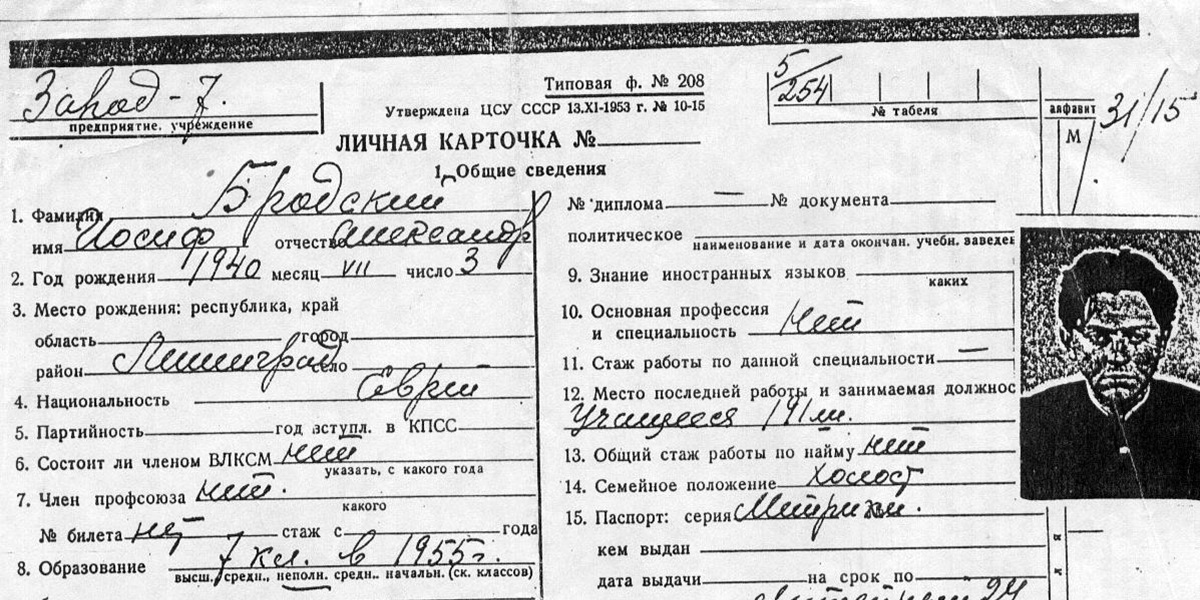 Завод - 7.
предприятие, учреждение
Типовая ф. № 208
Утверждена ЦСУ СССР 13.XI-1953 г. № 10-15
5/254
№ табеля
алфавит
М
31/15
ЛИЧНАЯ КАРТОЧКА №
1. Общие сведения
1. Фамилия Бродский
имя Иосиф отчество Александр
2. Год рождения 1940 месяц VII число 3
3. Место рождения: республика, край
область город
район Ленинград село
4. Национальность Еврей
5. Партийность год вступл. в КПСС
6. Состоит ли членом ВЛКСМ нет
указать, с какого года
7. Член профсоюза нет.
какого
№ билета нет стаж с года
8. Образование 7 кл. в 1955 г.
высш., средн., неполн. средн., начальн. (ск. классов)
№ диплома — № документа
политическое
наименование и дата окончан. учебн. заведе
9. Знание иностранных языков
каких
10. Основная профессия
и специальность нет
11. Стаж работы по данной специальности —
12. Место последней работы и занимаемая должнос
Учащееся 191 ш.
13. Общий стаж работы по найму нет
14. Семейное положение холост
15. Паспорт: серия Метрики.
кем выдан
дата выдачи на срок по
24